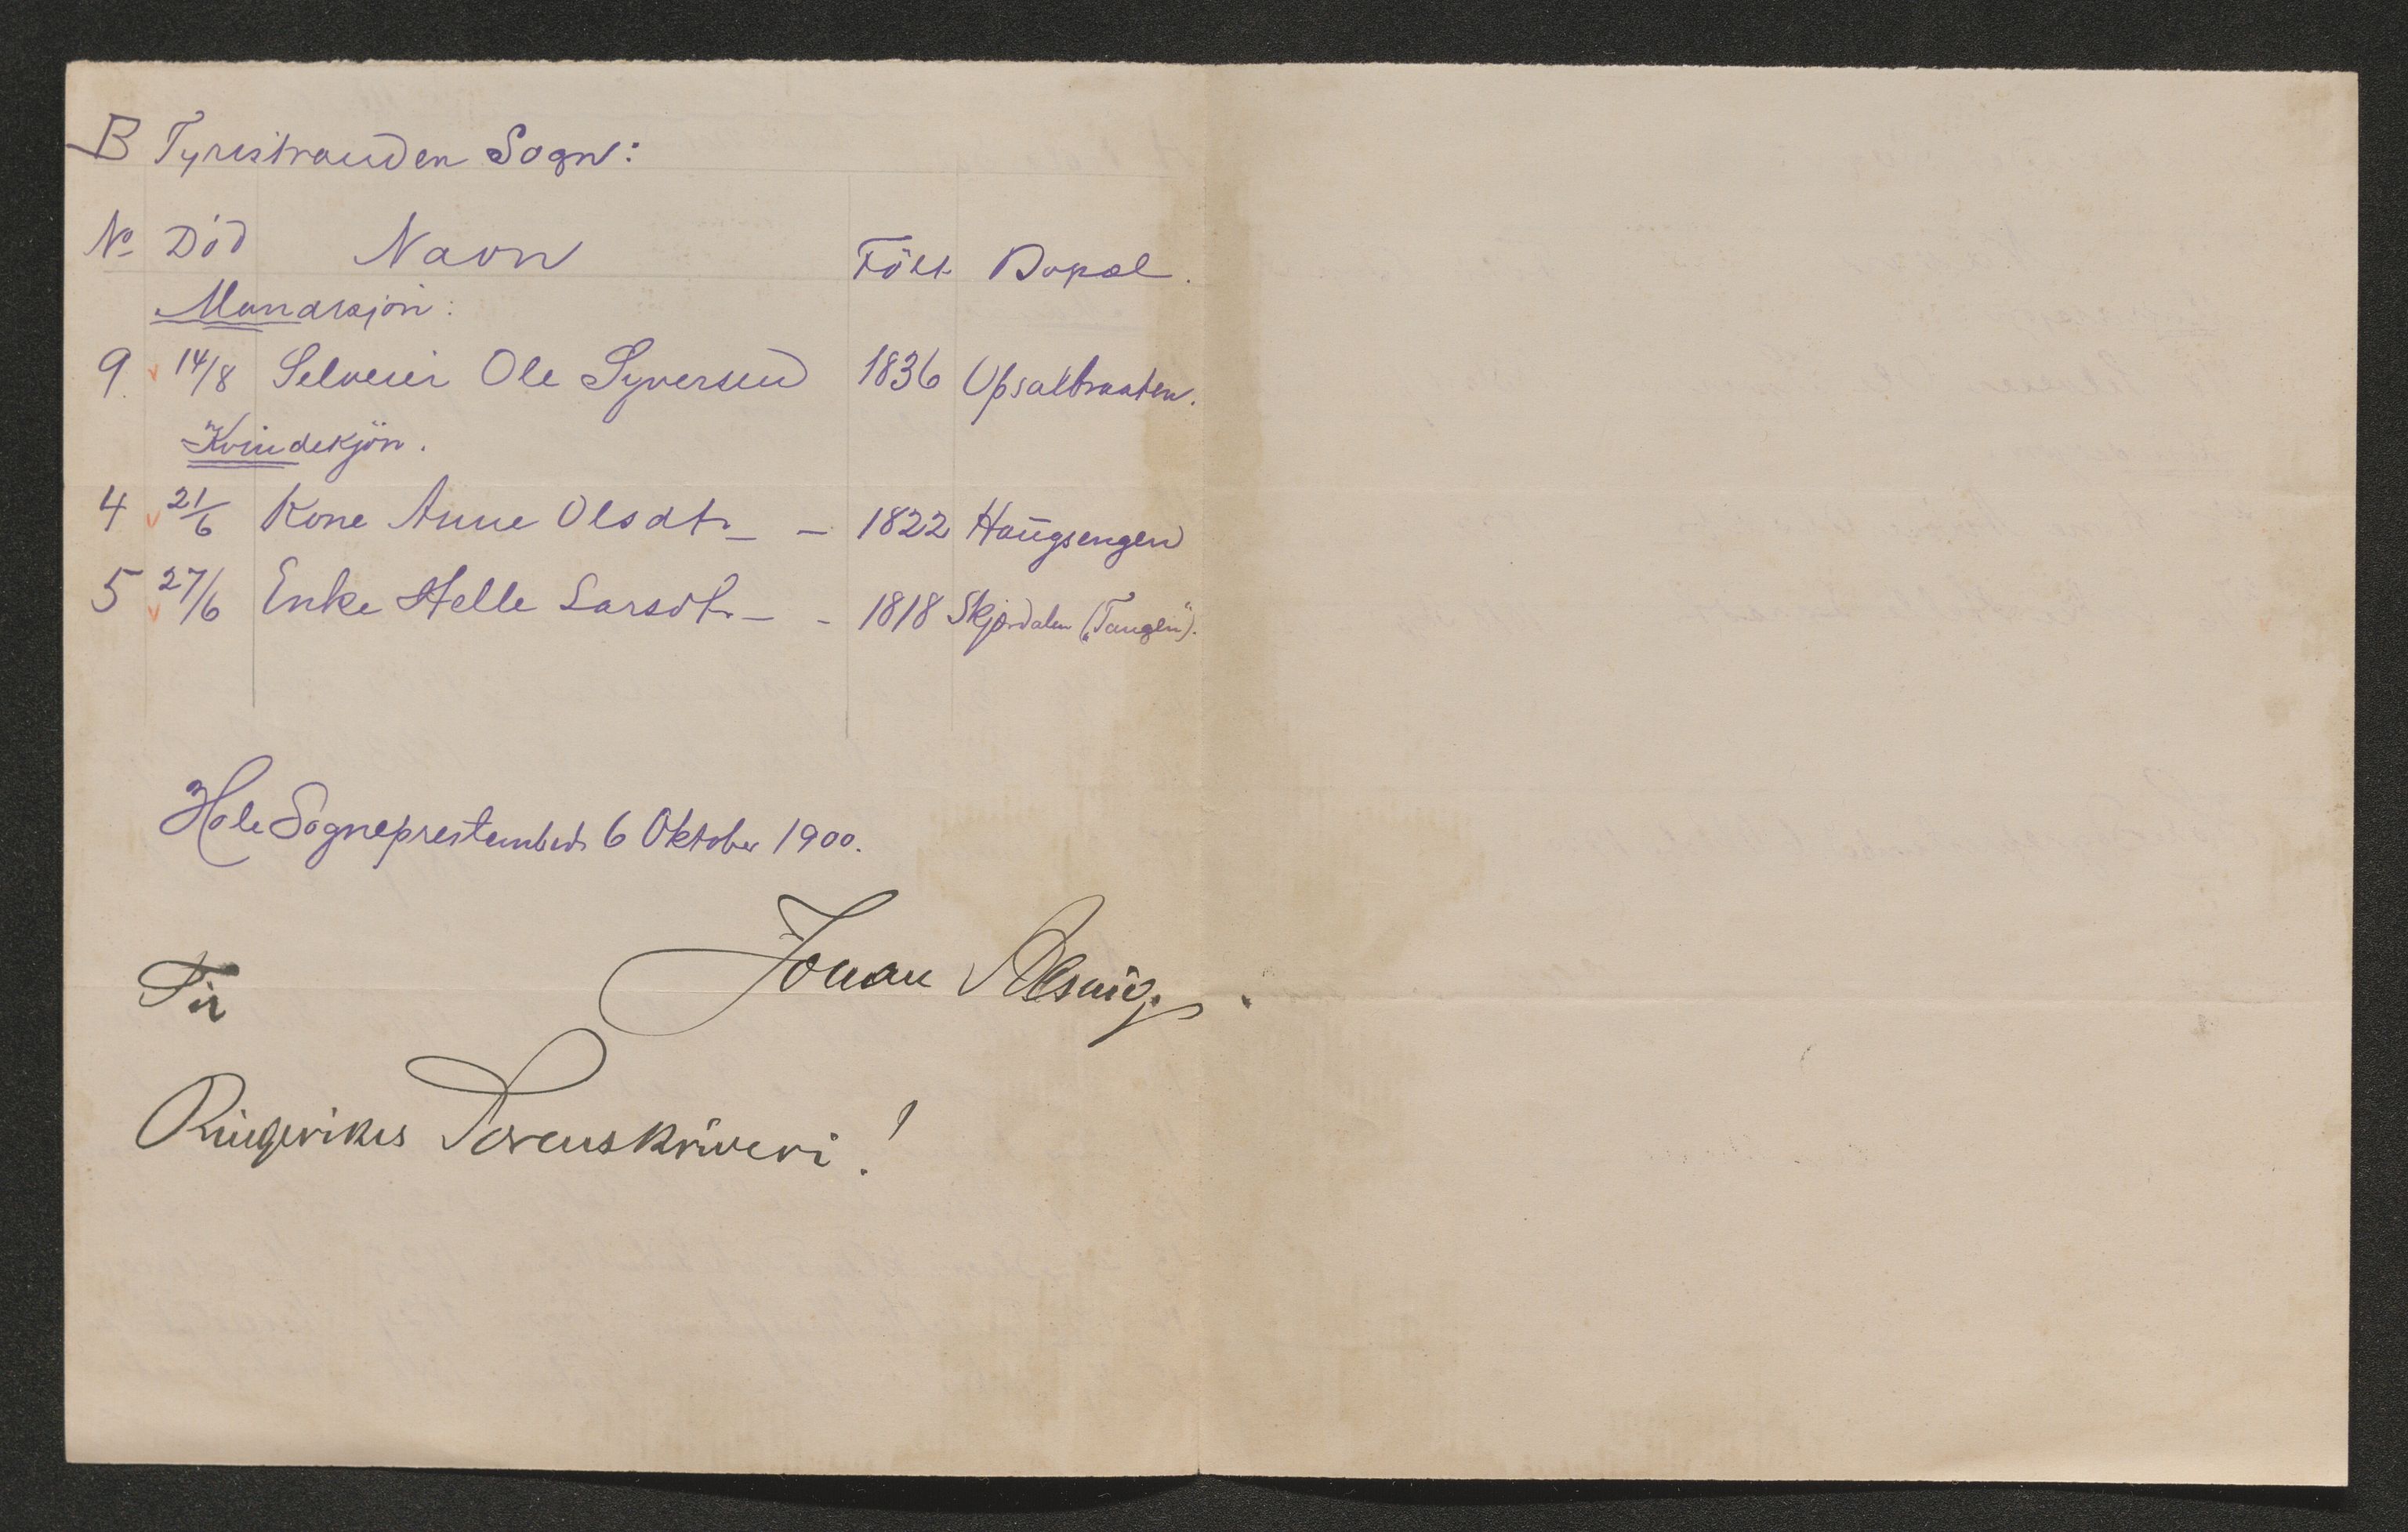 B Tyristranden Sogn:
No Död Navn Födt Bopæl.
Mandkjön:
9 14/8 Selveier Ole Syversen 1836 Opsalbraaten.
Kvindekjön.
4 21/6 Kone Anne Olsdtr — — 1822 Haugsengen
5 27/6 Enke Helle Larsdtr — - 1818 Skjærdalen („Tangen").
Hole Sogneprestembede 6 Oktober 1900.
Johan
Til
Ringerikes Sorenskriveri!